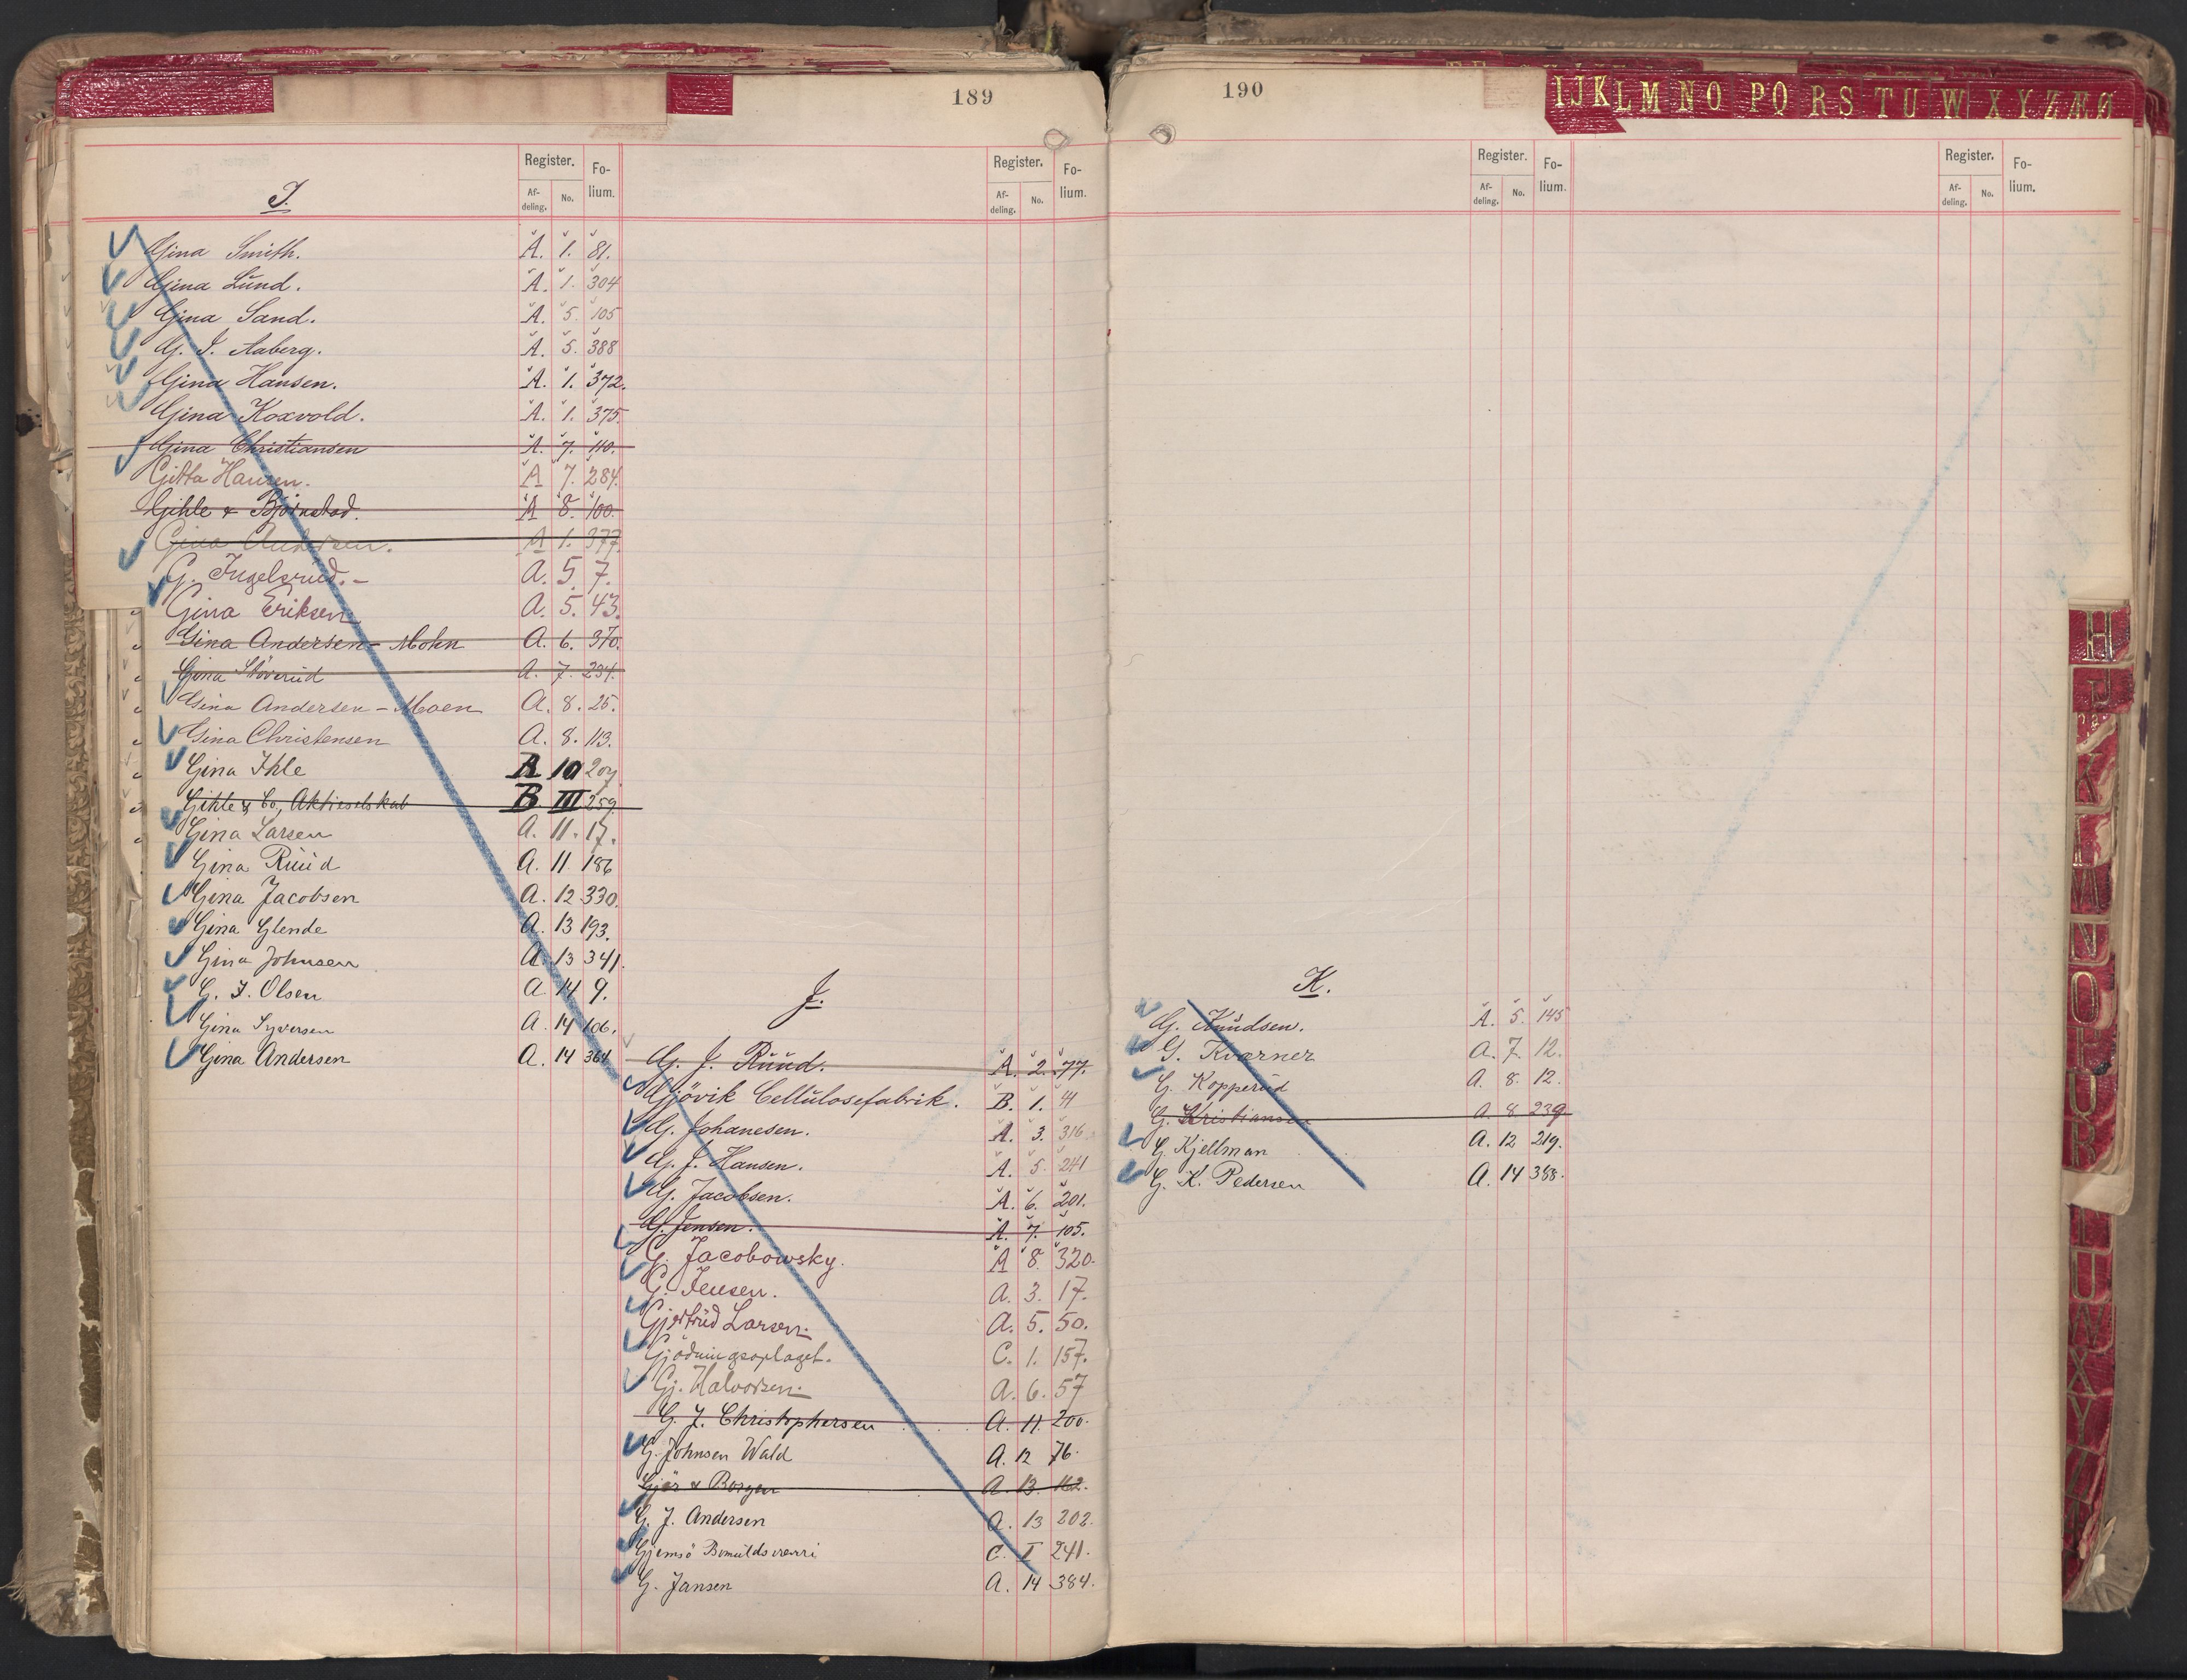 189
Register. Folium. Register. Folium.
Afdeling. No. Afdeling. No.
I.
Gina Smith. A. 1. 81.
Gina Lund. A. 1. 304
Gina Sand. A. 5. 105
G. I. Aaberg. A. 5. 388
Gina Hansen. A. 1. 372.
Gina Koxvold. A. 1. 375.
Gina Christiansen A. 7. 110.
Gitta Hansen. A 7. 284.
Gihle & Björnstad. A 8. 100.
Gina Andersen. A 1. 377.
G. Ingelsrud. A. 5. 7.
Gina Eriksen A. 5. 43.
Gina Andersen-Mohn A. 6. 370.
Gina Støverud A. 7. 234.
Gina Andersen - Moen A. 8. 25.
Gina Christensen A. 8. 113.
Gina Ihle A 10 207
Gihle & Co, Aktieselskab B III 259
Gina Larsen A. 11. 17.
Gina Ruud A. 11 186
Gina Jacobsen A. 12 330.
Gina Glende A. 13 193.
Gina Johnsen A. 13 341.
G. I. Olsen A 14 9.
Gina Syversen A. 14 106.
Gina Andersen A. 14 364
J.
G. J. Ruud. A. 2. 77.
Gjövik Cellulosefabrik. B. 1. 41
G. Johanesen. A. 3. 316.
G. J. Hansen. A. 5. 241
G. Jacobsen. A. 6. 201.
G. Jensen. A. 7. 105.
G. Jacobowsky. A 8. 320.
G. Jensen. A. 3. 17.
Gjertrud Larsen. A. 5. 50.
Gjödningsoplaget. C. 1. 157.
Gj. Halvorsen. A. 6. 57
G. J. Christophersen A. 11. 200.
G. Johnsen Wald A. 12 76.
Gjør & Borgen A. 13. 162.
G. J. Andersen A. 13 202.
Gjemsö C. I 241.
G. Jansen A. 14 384.
190
IJKLMNOPQRSTUWXYZÆØ
Register. Folium. Register. Folium.
Afdeling. No. Afdeling. No.
K.
G. Knudsen. A. 5. 145
G. Kværner A. 7. 12.
G. Kopperud A. 8. 12.
G. Kristiansen A. 8 239.
G. Kjellman A. 12 219.
G. K. Pedersen A. 14 388.
H
J
K
L
M
N
O
P
R
U
W
X
Y